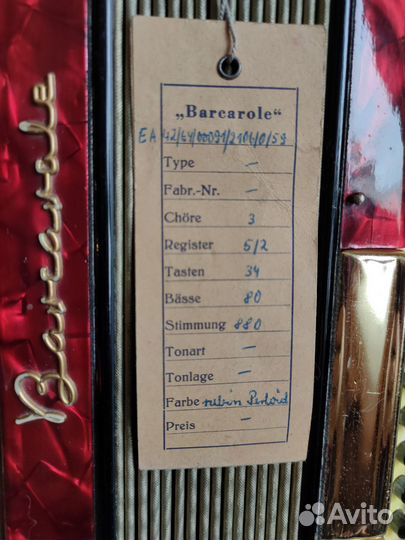 Barcarole
„Barcarole“
EA 42/64/00091/2104/0/59
Type —
Fabr.-Nr. —
Chöre 3
Register 5/2
Tasten 34
Bässe 80
Stimmung 880
Tonart —
Tonlage —
Farbe rubin Perloid
Preis —
Avito